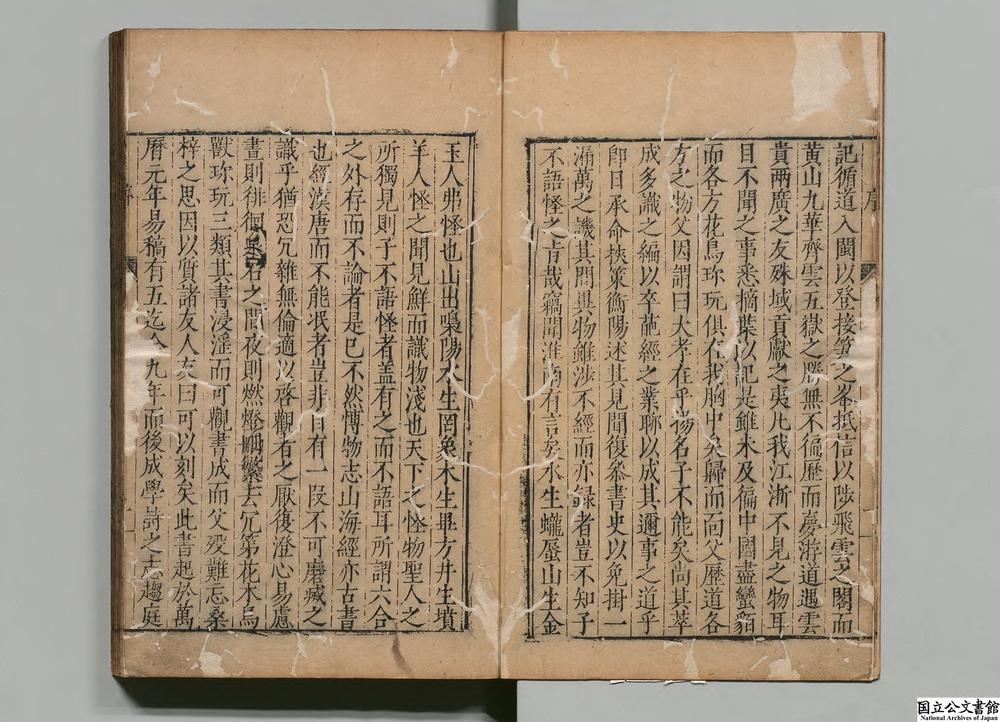 記循道入閩以登接笋之峯抵信以陟飛雲之閣而
黄山九華齊雲五嶽之勝無不徧歷而夢游道遇雲
貴兩廣之友殊域貢獻之夷凡我江淛不見之物耳
目不聞之事悉摘葉以記是雖未及徧中國盡蠻貊
而各方花鳥珎玩俱在我胸中矣歸而面父歷道各
方之物父因謂曰大孝在乎揚名子不能矣尚其萃
成多識之編以卒葩經之業聊以成其邇事之道乎
即日承命挾策衡陽述其見聞復叅書史以免掛一
漏萬之譏其間異物雖涉不經而亦録者豈不知子
不語怪之肯哉竊聞淮南有言矣水生蠬蜃山生金
玉人弗怪也山出嘄陽水生罔象木生畢方井生墳
羊人怪之聞見鮮而識物淺也天下之怪物聖人之
所獨見則子不語怪者盖有之而不語耳所謂六合
之外存而不論者是已不然愽物志山海經亦古書
也經漢唐而不能泯者豈非自有一段不可磨滅之
識乎猶恐冗雜無倫適以啓觀者之厭復澄心易慮
晝則徘徊泉石之間夜則燃燈繙繁去冗第花木鳥
獸珎玩三類其書浸淫而可觀書成而父歿難忘桑
梓之思因以質諸友人友曰可以刻矣此書起於萬
曆元年易稿有五迄今九年而後成學詩之志趨庭
序
国立公文書館
National Archives of Japan